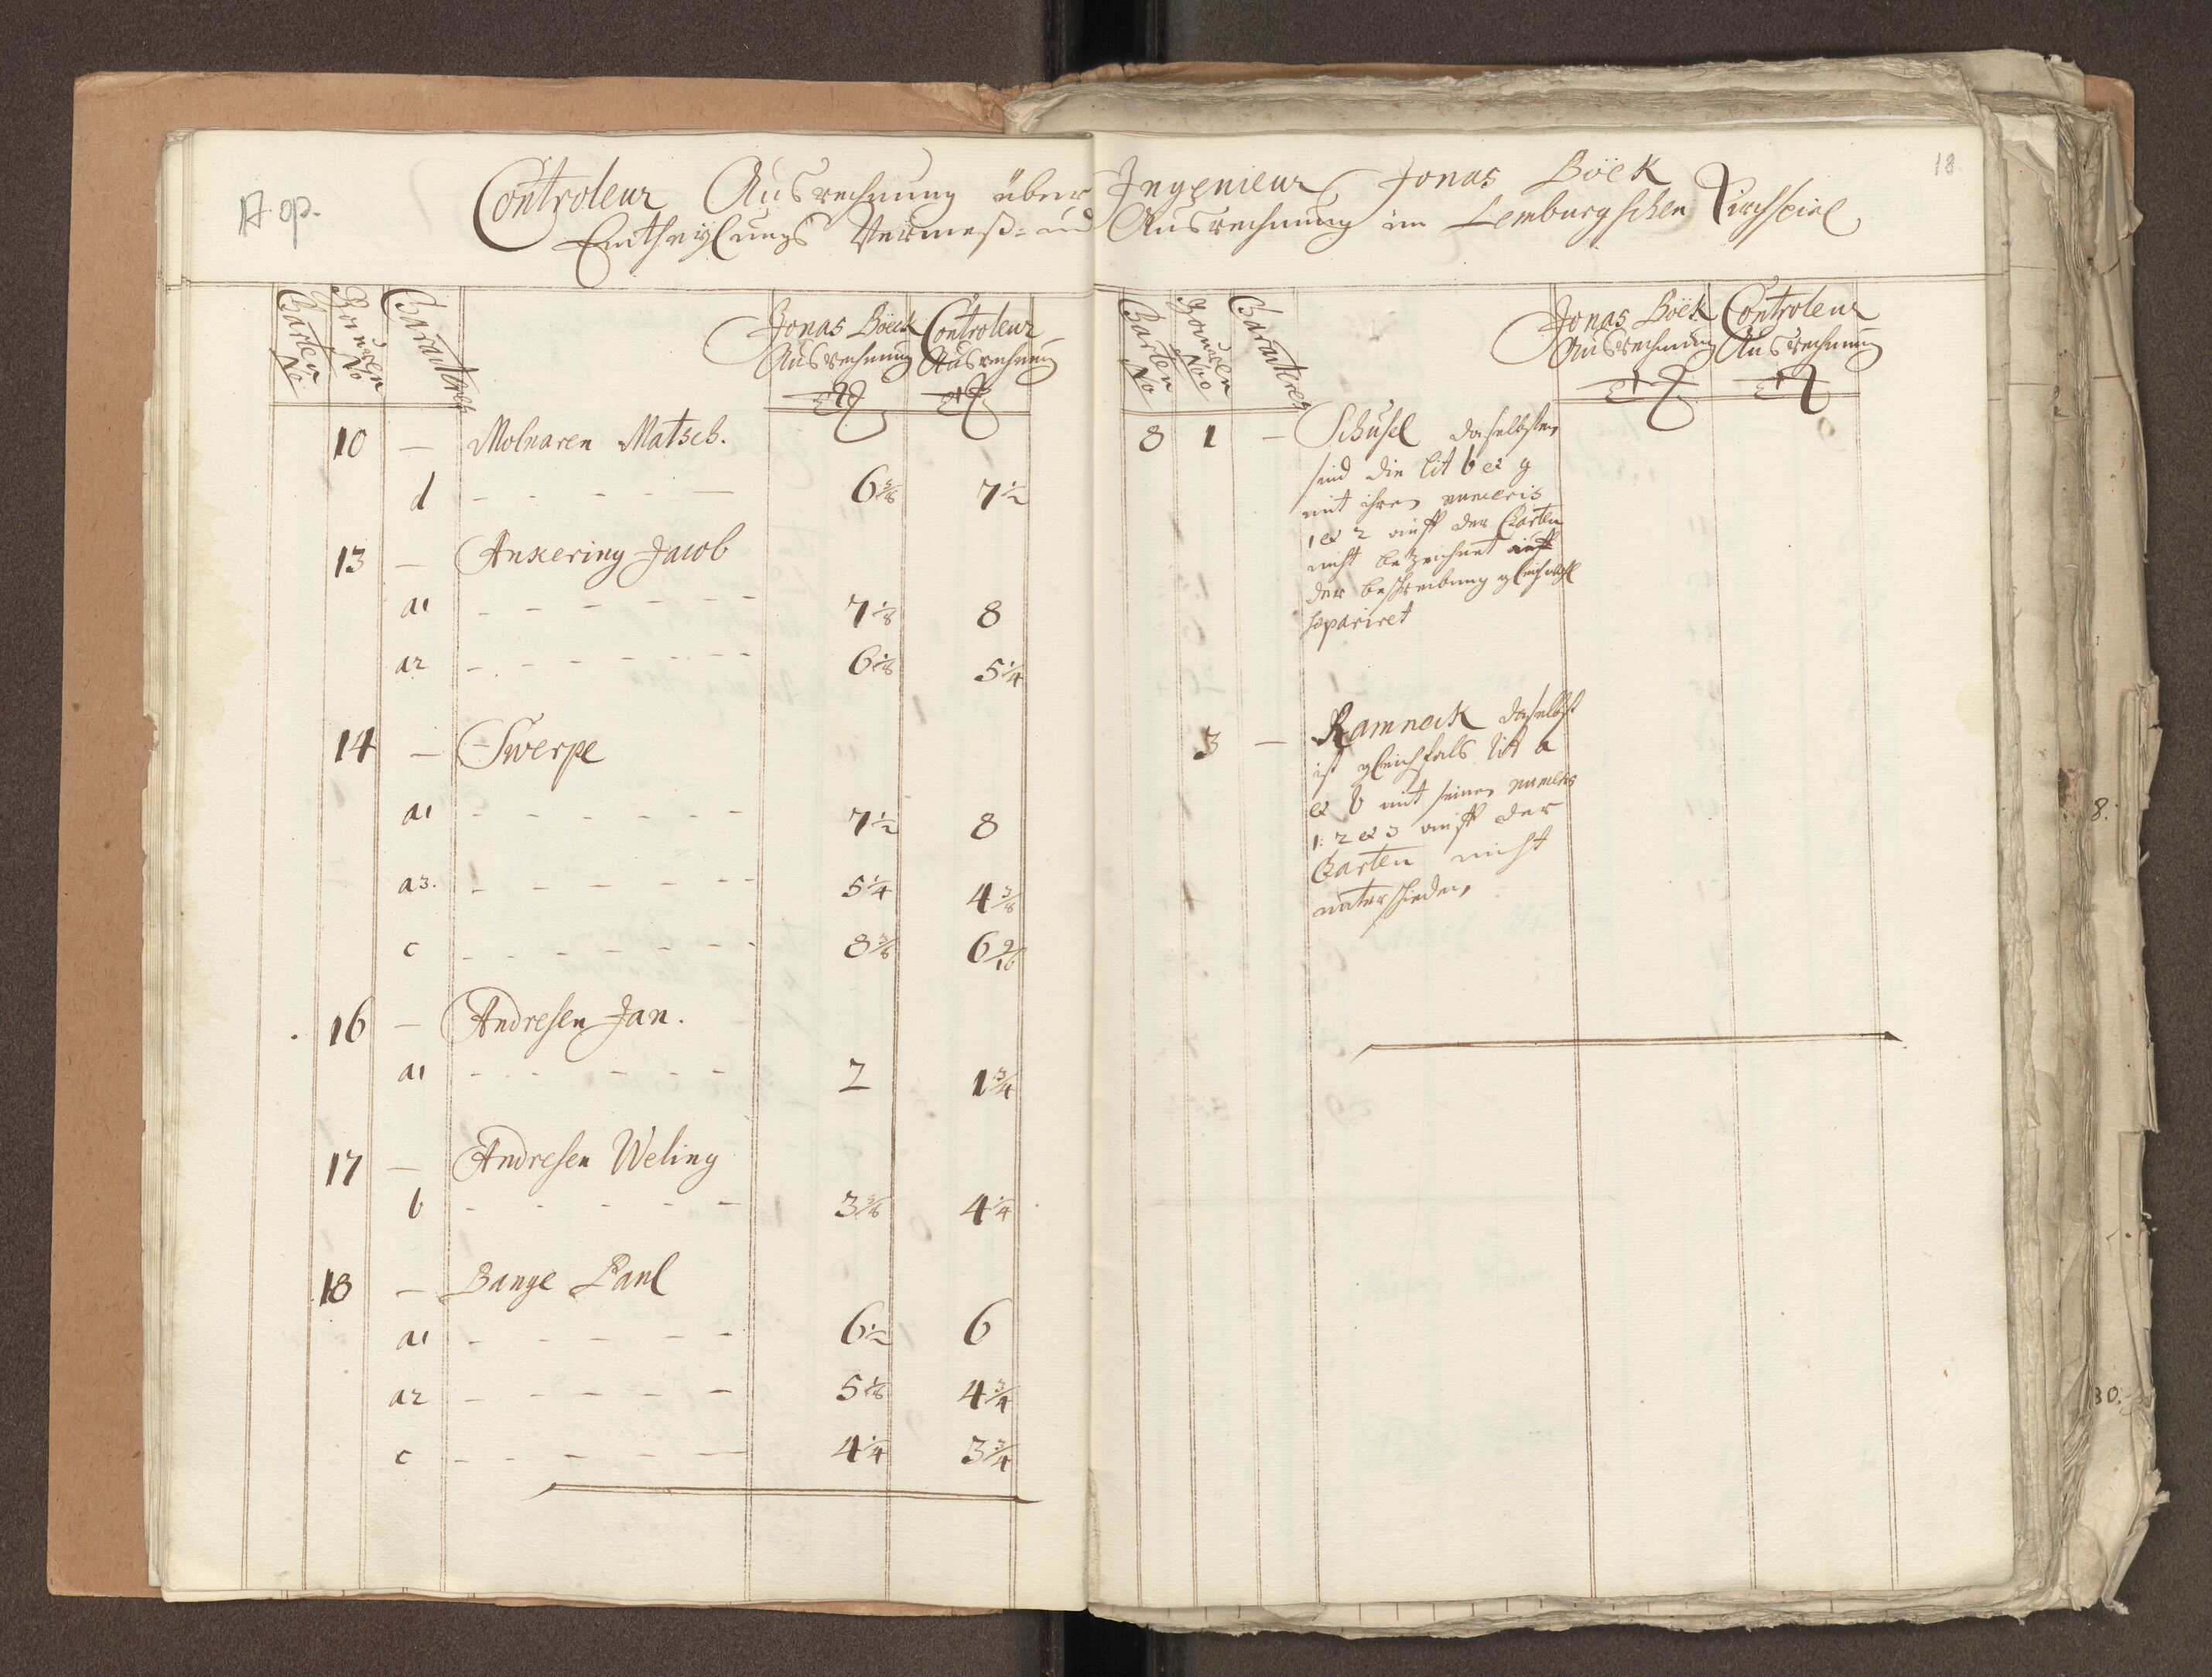 17 op.
Controleur Ausrechnung über Ingenieur Jonas Böek
Eintheylungs Vermeß= und Ausrechnung im Lemburgschen Kirchspiel
Carten No
Bauren No
Caracteres
Jonas Böeck Ausrechnung
Controleur Ausrechnung
10 — Molnaren Matsch.
d 6 3/8 7 1/2
13 — Ankering Jacob
a1 7 1/8 8
a2 6 1/8 5 1/4
14 — Swerpe
a1 7 1/2 8
a3. 5 1/4 4 3/8
c 8 3/8 6 9/16
16 — Andresen Jan.
a1 2 1 3/4
17 — Andresen Weling
b 3 3/8 4 1/4
18 — Bange Paul
a1 6 1/2 6
a2 5 1/8 4 3/4
c 4 1/4 3 3/4
18
Carten No
Bauren No
Caracteres
Jonas Böek Ausrechnung
Controleur Ausrechnung
8 1 — Schusel daselbsten
sind die lit b et g
mit ihren numeris
1 et 2 auff der Carten
nicht bezeichnet auff
der beschreibung gleichwohl
separiret
3 — Ramneck daselbst
ist gleichfals lit a
et b mit seinen numeris
1: 2 et 3 auff der
Carten nicht
unterschieden,
8.
30.